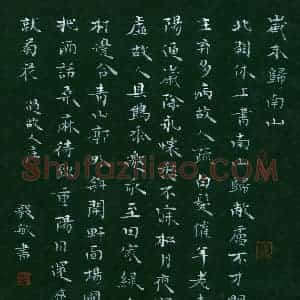 歲末歸南山
北闕休上書南山歸敝廬不才明
主棄多病故人疏白髮催年老
陽逼歲除永懷愁不寐松月夜
虛故人具雞黍邀我至田家綠
村邊合青山郭外斜開軒面場圃
把酒話桑麻待到重陽日還來
就菊花 過故人莊 毅敏書
Shufaziliao.COM